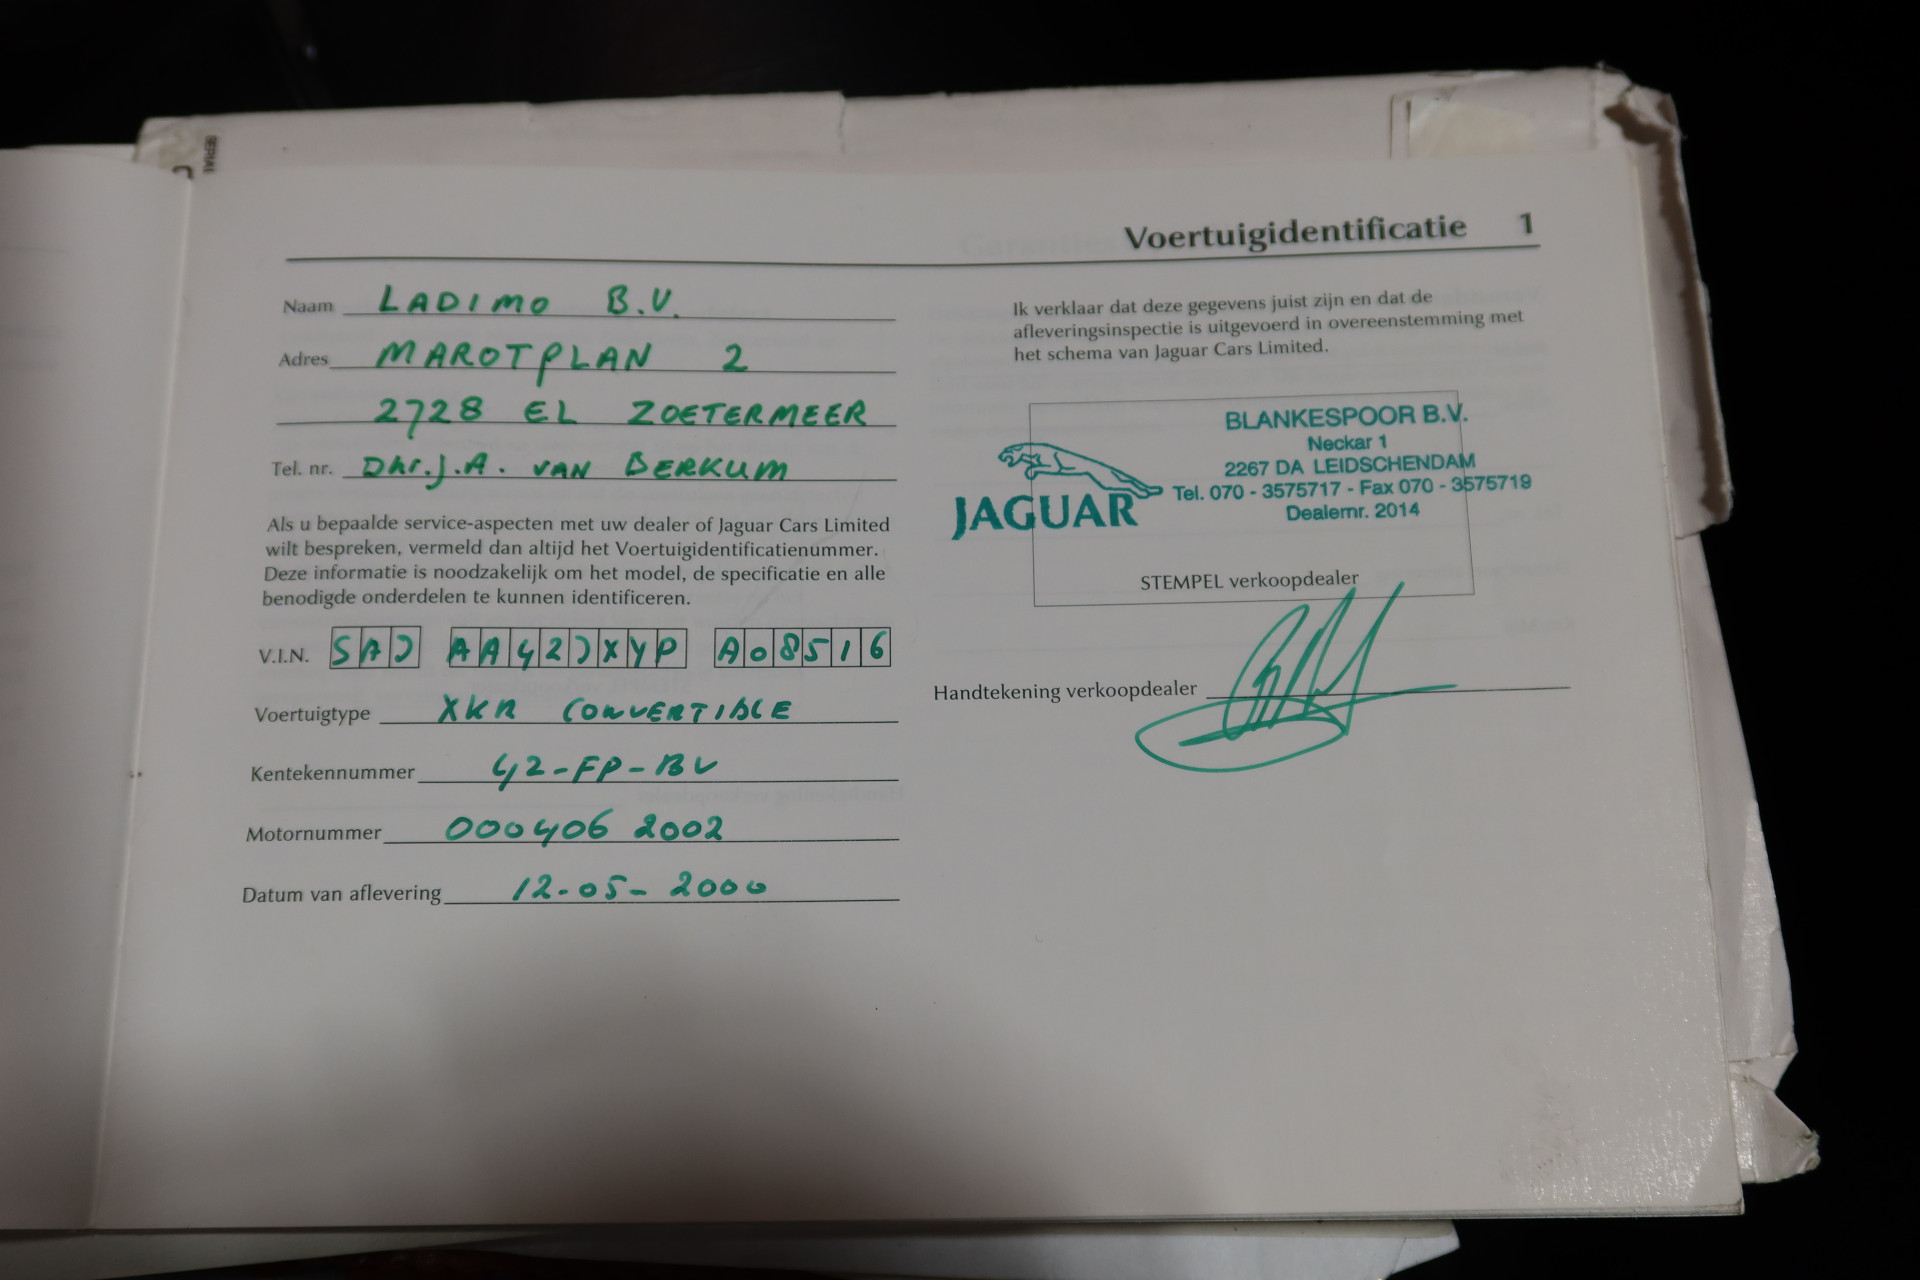 Voertuigidentificatie 1
Naam LADIMO B.V.
Adres MAROTPLAN 2
2728 EL ZOETERMEER
Tel. nr. Dhr. J.A. VAN BERKUM
Als u bepaalde service-aspecten met uw dealer of Jaguar Cars Limited
wilt bespreken, vermeld dan altijd het Voertuigidentificatienummer.
Deze informatie is noodzakelijk om het model, de specificatie en alle
benodigde onderdelen te kunnen identificeren.
V.I.N. SAJ AA42JXYP A08516
Voertuigtype XKR CONVERTIBLE
Kentekennummer 42-FP-BV
Motornummer 000406 2002
Datum van aflevering 12-05-2000
Ik verklaar dat deze gegevens juist zijn en dat de
afleveringsinspectie is uitgevoerd in overeenstemming met
het schema van Jaguar Cars Limited.
JAGUAR
BLANKESPOOR B.V.
Neckar 1
2267 DA LEIDSCHENDAM
Tel. 070 - 3575717 - Fax 070 - 3575719
Dealernr. 2014
STEMPEL verkoopdealer
Handtekening verkoopdealer